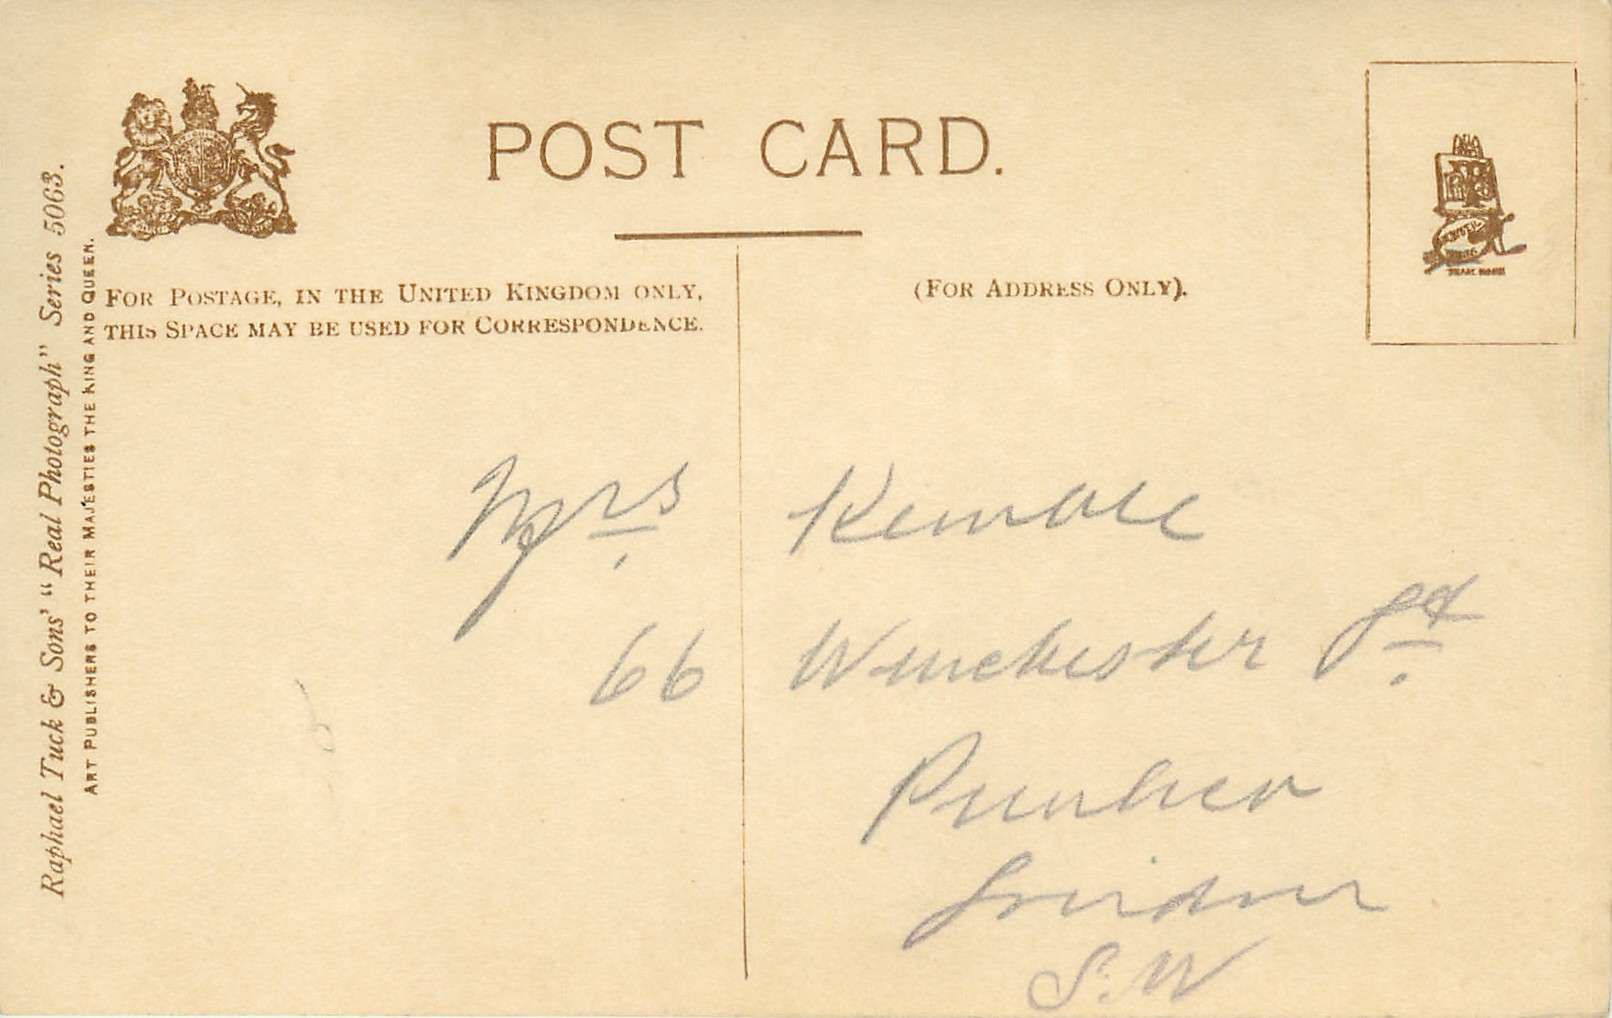 POST CARD.
FOR POSTAGE, IN THE UNITED KINGDOM ONLY,
THIS SPACE MAY BE USED FOR CORRESPONDENCE.
(FOR ADDRESS ONLY).
Raphael Tuck & Sons' "Real Photograph" Series 5063.
ART PUBLISHERS TO THEIR MAJESTIES THE KING AND QUEEN.
Mrs
66 Winchester St.
Pimlico
London
S.W